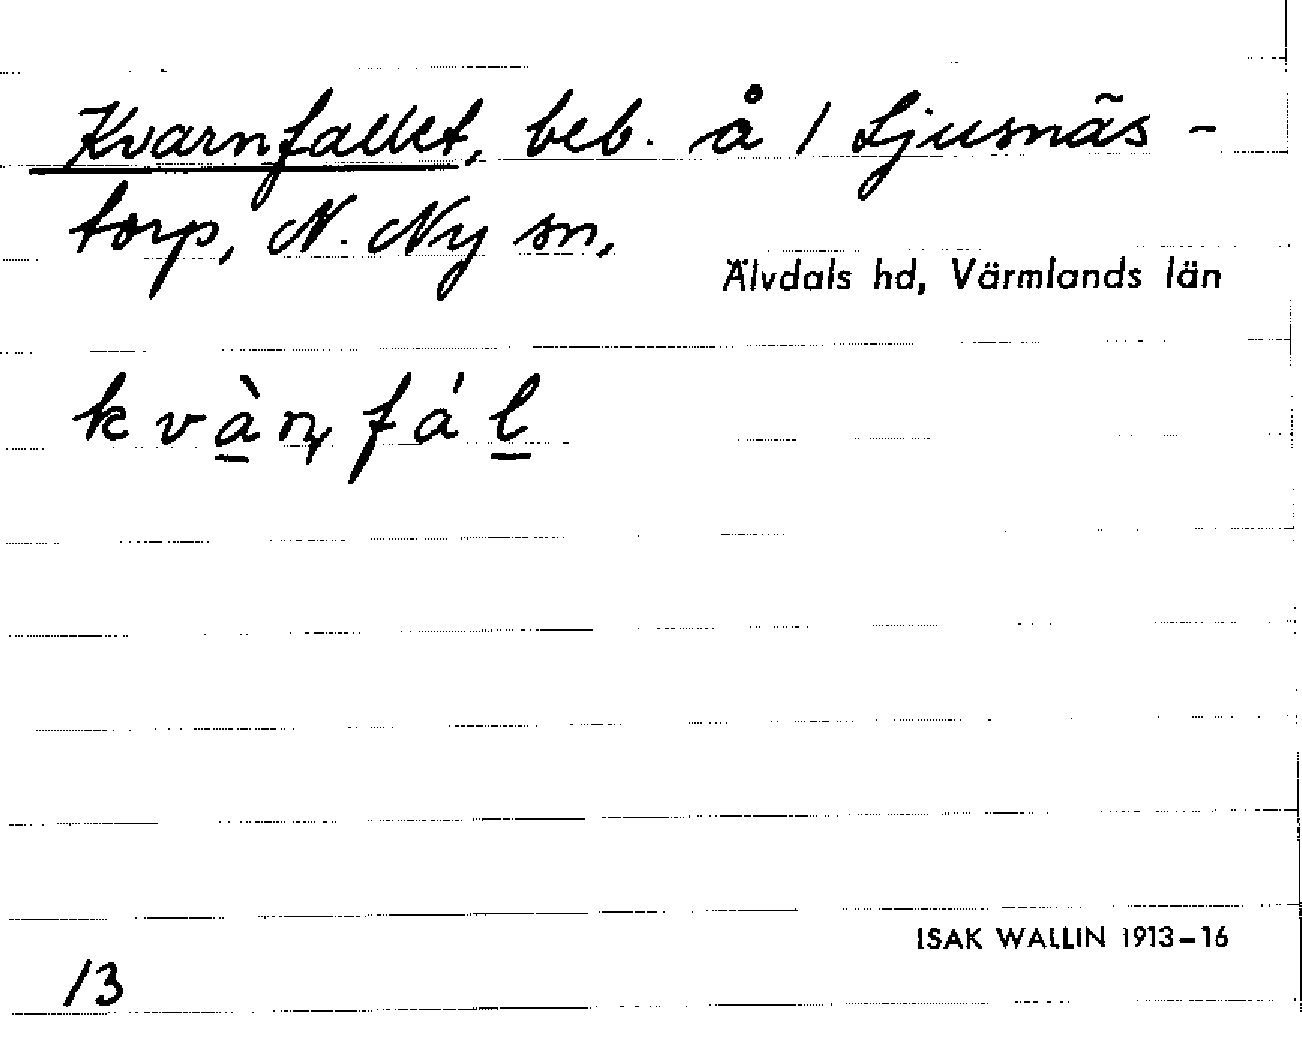 Kvarnfallet, beb. å / Ljusnäs-
torp, N. Ny sn,
Älvdals hd, Värmlands län
kvàn̦fál
ISAK WALLIN 1913-16
13